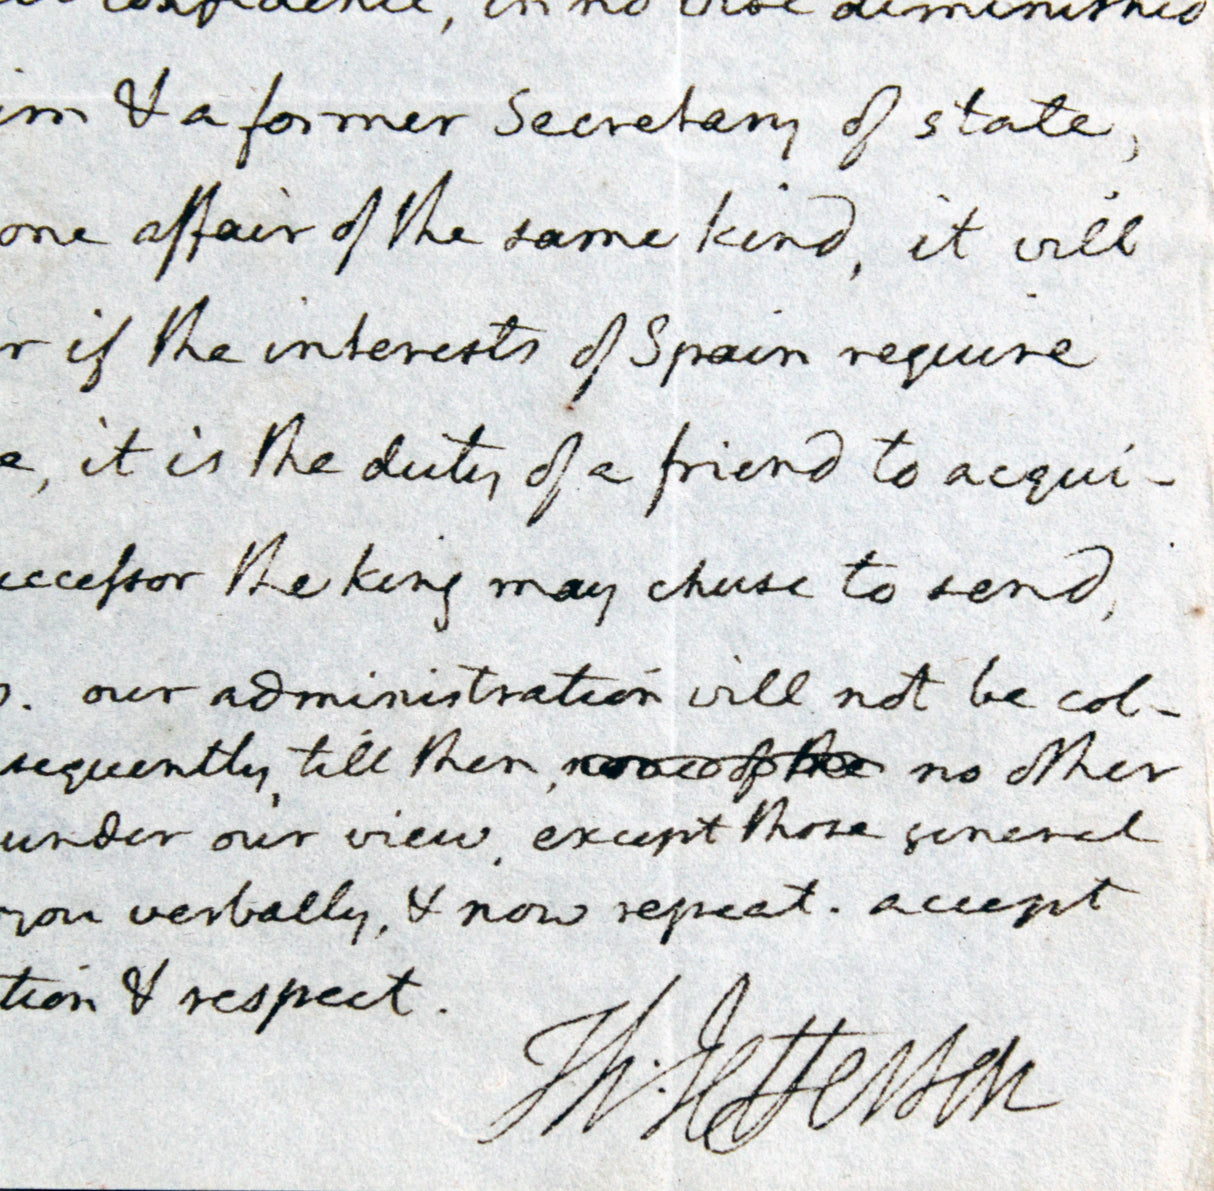 confidence, in no wise diminished
im & a former Secretary of state,
one affair of the same kind, it will
r if the interests of Spain require
e, it is the duty of a friend to acqui-
uccessor the king may chuse to send,
our administration will not be col-
sequently, till then, none of the no other
under our view, except those general
you verbally, & now repeat. accept
tion & respect.
Th: Jefferson